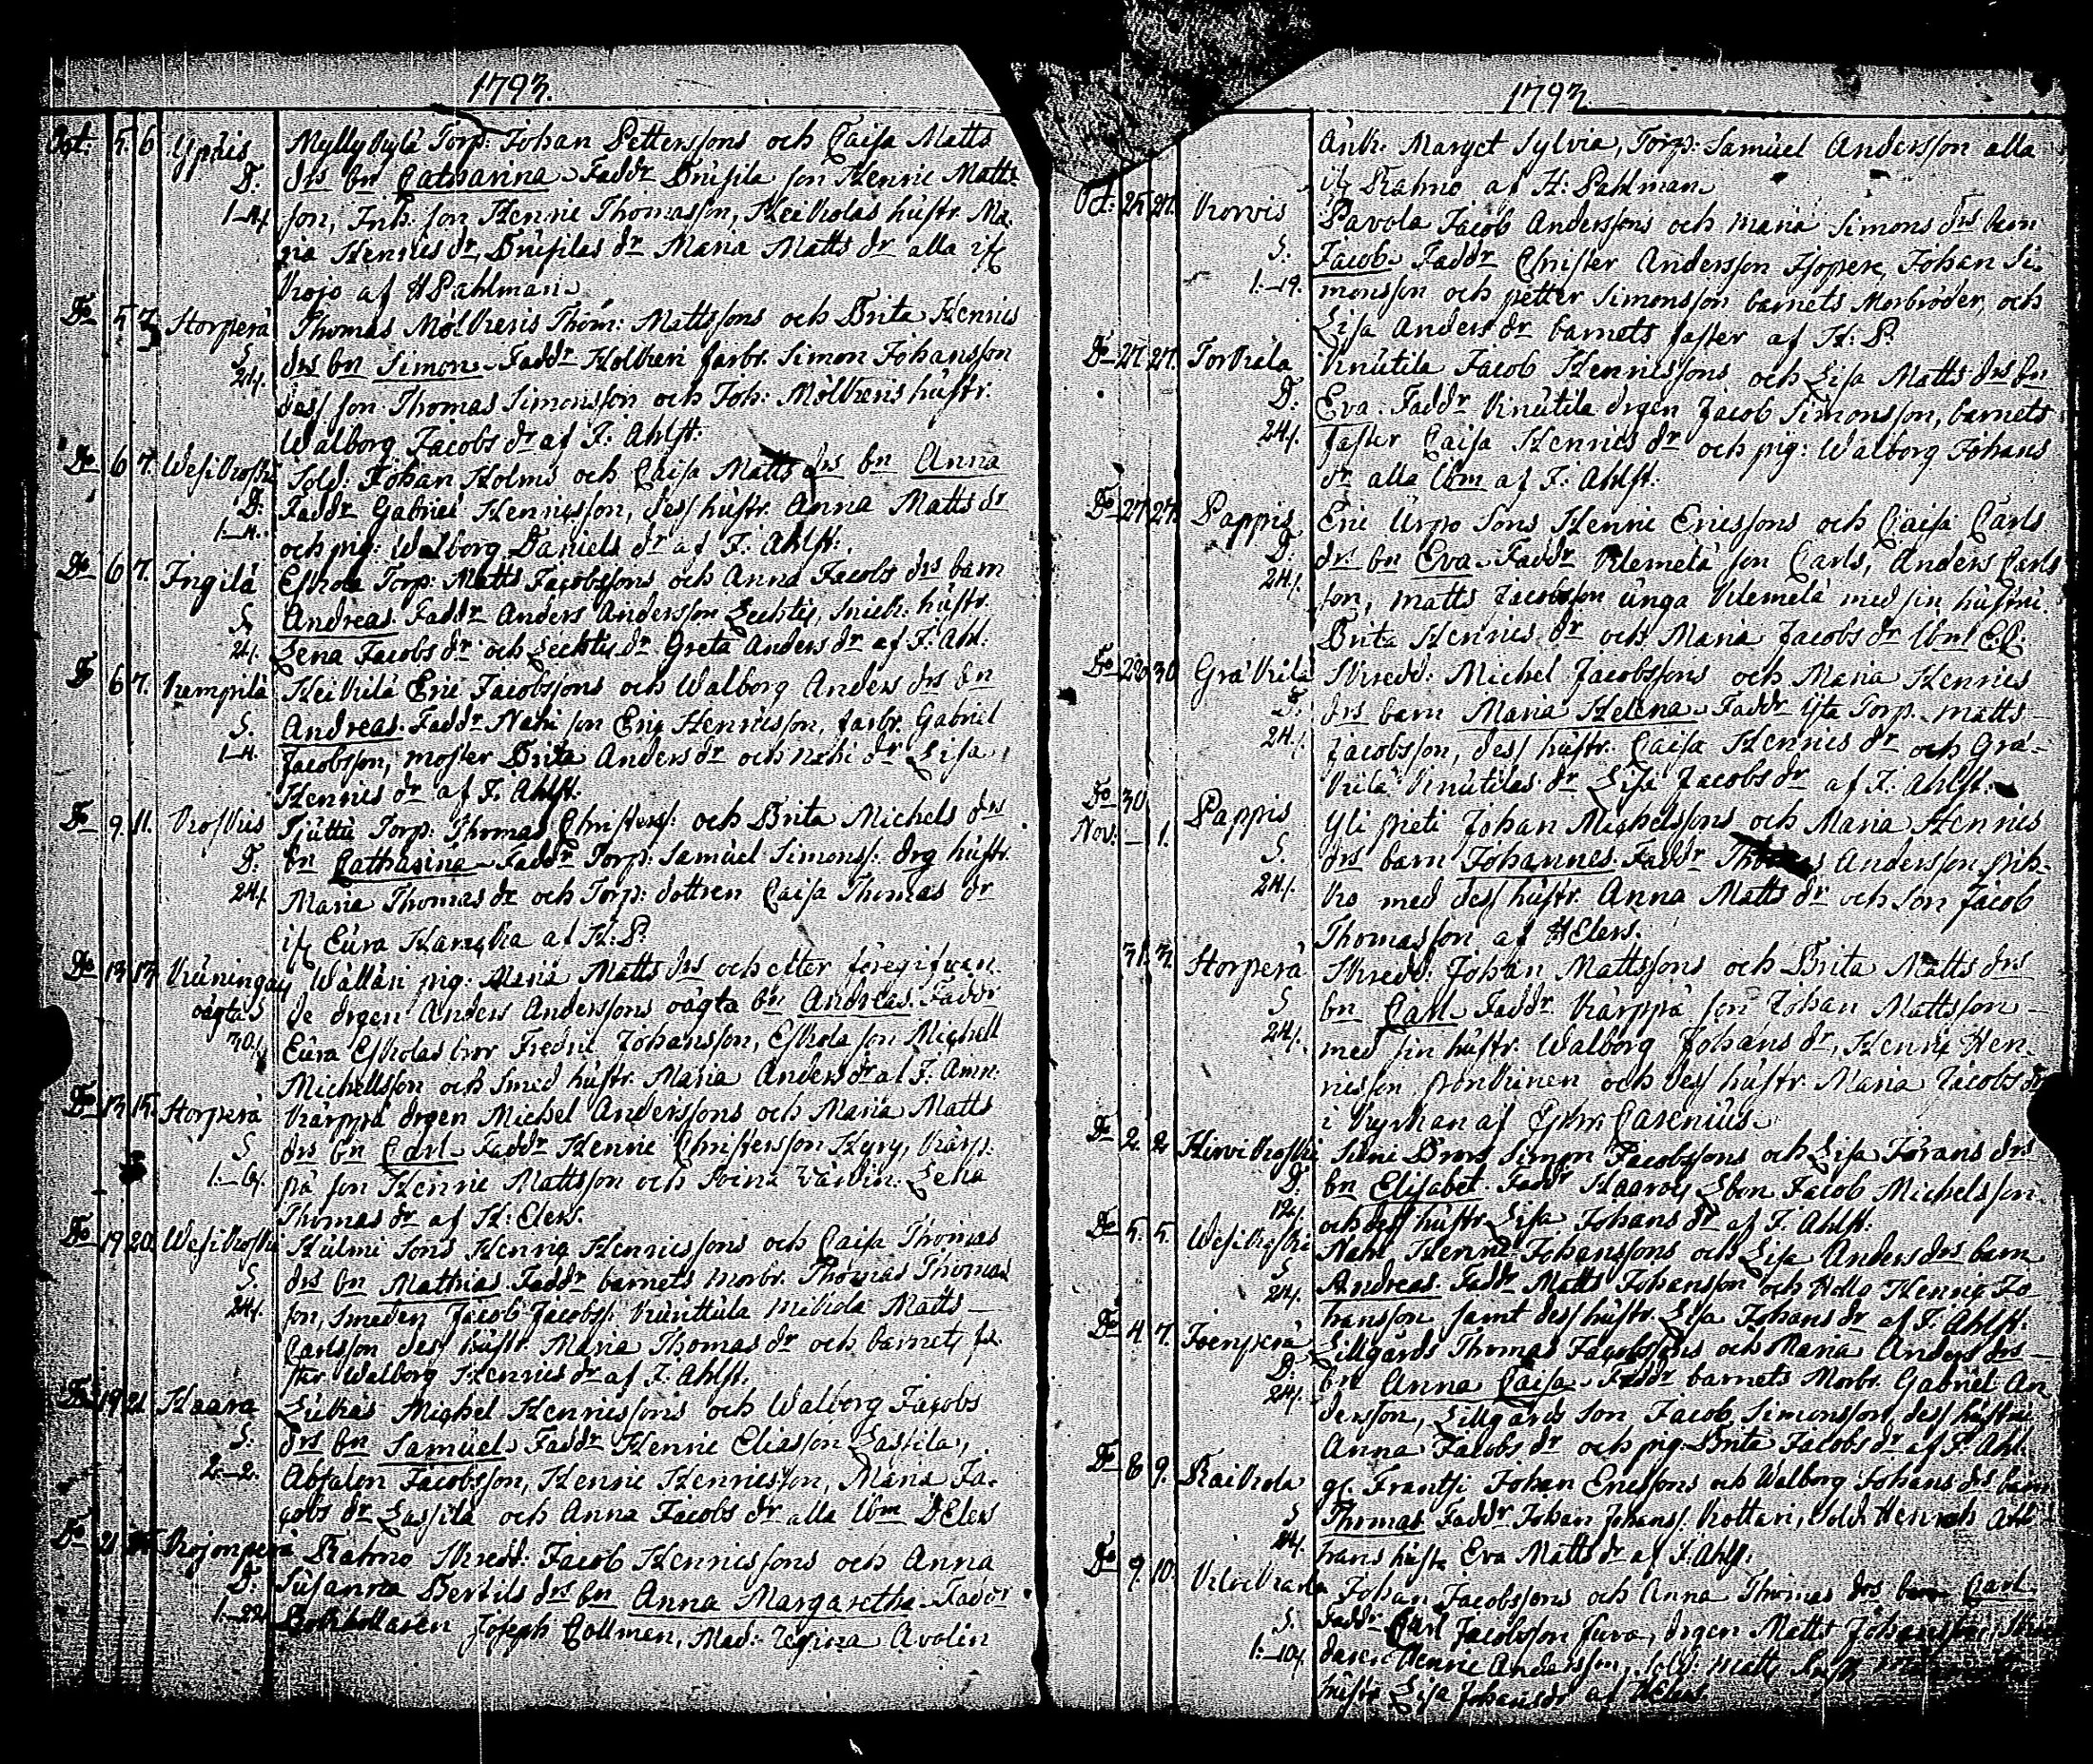 1793.
Oct. 5. 6 Ypäis Myllykylä Torp: Johan Petterssons och Caisa Matts
D. drs bn Catharina. Faddr Prusila son Henric Matts-
1_4. son, Inh. son Henric Thomasson, Heikolas hustr. Ma-
ria Henricsdr, Prusilas dr Maria Matts dr alla if
Kojo af H Pahlman.
Do 5 7 Horperä Thomas Mölkeris Thom: Mattssons och Brita Henrics
S drs bn Simon. Faddr farbr. Simon Johansson
24. dess son Thomas Simonsson och Joh: Mölkeris hustr.
Walborg Jacobs dr af J. Ahlst.
Do 6 7. Wesikoski Sold: Johan Holms och Caisa Matts drs bn Anna
D. Faddr Gabriel Henricsson, dess hustr. Anna Matts dr
1_4. och pig: Walborg Daniels dr af J. Ahlst.
Do 6 7. Ingilä Eskola Torp: Matts Jacobssons och Anna Jacobs drs barn
S. Andreas. Faddr Anders Andersson Lechtis, hustr.
24. Lena Jacobs dr och Lechtis dr Greta Anders dr af J. Ahl.
Do 6 7. Kempilä Heikilä Eric Jacobssons och Walborg Anders drs bn
S. Andreas. Faddr Nahi son Eric Henricsson, farbr. Gabriel
1_4. Jacobsson, moster Brita Anders dr och Nahi dr Lisa
Henrics dr af J. Ahlst.
Do 9. 11. Koskis Tjuttu Torp: Thomas Christerss: och Brita Michels drs
D. bn Catharina. Faddr Torp: Samuel Simonss: drg hustr.
24. Maria Thomas dr och Torp: dottren Caisa Thomas dr
if Eura af H: P.
Do 13 13 Wälläri pig: Maria Matts drs och efter föregifwan-
oägta S de drgen Anders Anderssons oägta bn Andreas. Faddr
30. Eura Eskolas bror Fredric Johansson, Eskola son Michell
Michellsson och Smed hustr. Maria Anders dr af J. Amn.
Do 13 15. Horperä Kärppä drgen Michel Anderssons och Maria Matts
S drs bn Carl. Faddr Henric Christersson Hyry, Kärp-
1._6. pä son Henric Mattsson och Lena
Thomas dr af H: Elers.
Do 19 20 Wesikoski Kulmi Sons Henric Henricssons och Caisa Thomas
S. drs bn Mathias. Faddr barnets morbr. Thomas Thomas
24. son, Smeden Jacob Jacobss: Kunttula Mikola Matts
Carlsson dess hustr. Maria Thomas dr och barnets fa-
ster Walborg Henrics dr af J. Ahlst.
Do 19 21 Haara Lukas Michel Henricssons och Walborg Jacobs
S. drs bn Samuel. Faddr Henric Eliasson Lassila,
2._2. Absalon Jacobsson, Henric Henricsson, Maria Ja-
cobs dr Lassila och Anna Jacobs dr alla ibm D Elers
Do 21 Kojonperä Rahmo Skredd: Jacob Henricssons och Anna
D. Susanna Bertils drs bn Anna Margaretha. Faddr
1._22. Joseph Collmen, Mad: Regina Avolin
1793
Änk: Marget Sylvia, Torp: Samuel Andersson alla
if Rahmo af H: Pahlman
Oct. 25 27. Korvis Pavola Jacob Anderssons och Maria Simons drs barn
S. Jacob. Faddr Christer Andersson Isopere, Johan Si-
1._19. monsson och petter Simonsson barnets Morbröder, och
Lisa Anders dr barnets faster af H: P.
Do 27. 27. Torkila Knutila Jacob Henricssons och Lisa Matts drs bn
D. Eva. Faddr Knutila drgen Jacob Simonsson, barnets
24. faster Caisa Henrics dr och pig: Walborg Johans
dr alla ibm af J. Ahlst.
Do 27 27. Pappis Eric Urpo Sons Henric Ericssons och Caisa Carls
D. drs bn Eva. Faddr Klemelä son Carls, Anders Carls
24. son, Matts Jacobsson unga Klemelä med sin hustru
Brita Henrics dr och Maria Jacobs dr ibm E.C.
Do 28 30 Gräkilä Skredd: Michel Jacobssons och Maria Henrics
drs barn Maria Helena. Faddr Torp. Matts
24. Jacobsson, dess hustr. Caisa Henrics dr och Grä-
kilä Knutilas dr Lisa Jacobs dr af J. Ahlst.
Do 30 Pappis Yli prieti Johan Michelssons och Maria Henrics
Nov. _ 1. drs barn Johannes. Faddr Thomas Andersson
S.
24. med dess hustr. Anna Matts dr och son Jacob
Thomasson af H Elers.
31. 3. Horperä Skredd: Johan Mattssons och Brita Matts drs
S bn Carl. Faddr Kärppä son Johan Mattsson
24. med sin hustr. Walborg Johans dr, Henric Hen-
ricsson och dess hustr. Maria Jacobs dr
i Kyrkan af Carenius
Do 2. 2 Hirvikoski Simon Jacobssons och Lisa Jörans drs
D. bn Elisabet. Faddr Jacob Michelsson
12. och dess hustr. Lisa Johans dr af J. Ahlst.
Do 5. 5. Wesikoski Nahi Henric Johanssons och Lisa Anders drs barn
S Andreas. Faddr Matts Johansson och Henric Jo-
24. hansson samt dess hustr. Lisa Johans dr af J. Ahlst.
Do 4 7. Joenperä Lillgårds Thomas Jacobssons och Maria Anders drs
D. bn Anna Caisa. Faddr barnets Morbr. Gabriel An-
24. dersson, Lillgårds Son Jacob Simonsson, dess hustru
Anna Jacobs dr och pig. Brita Jacobs dr af J. Ahl.
Do 8 9. Raikola gl. Frantsi Johan Ericssons och Walborg Johans drs barn
S Thomas. Faddr Johan Johanss. Kottari, Sold: Henrich
24. hans hustr Eva Matts dr af J. Ahls.
Do 9. 10. Johan Jacobssons och Anna Thomas drs barn Carl
S. Faddr Carl Jacobsson Juva, drgen Matts Johansson
1._10. Henric Andersson, Sold: Matts
hustr Lisa Johansdr af H Elers.